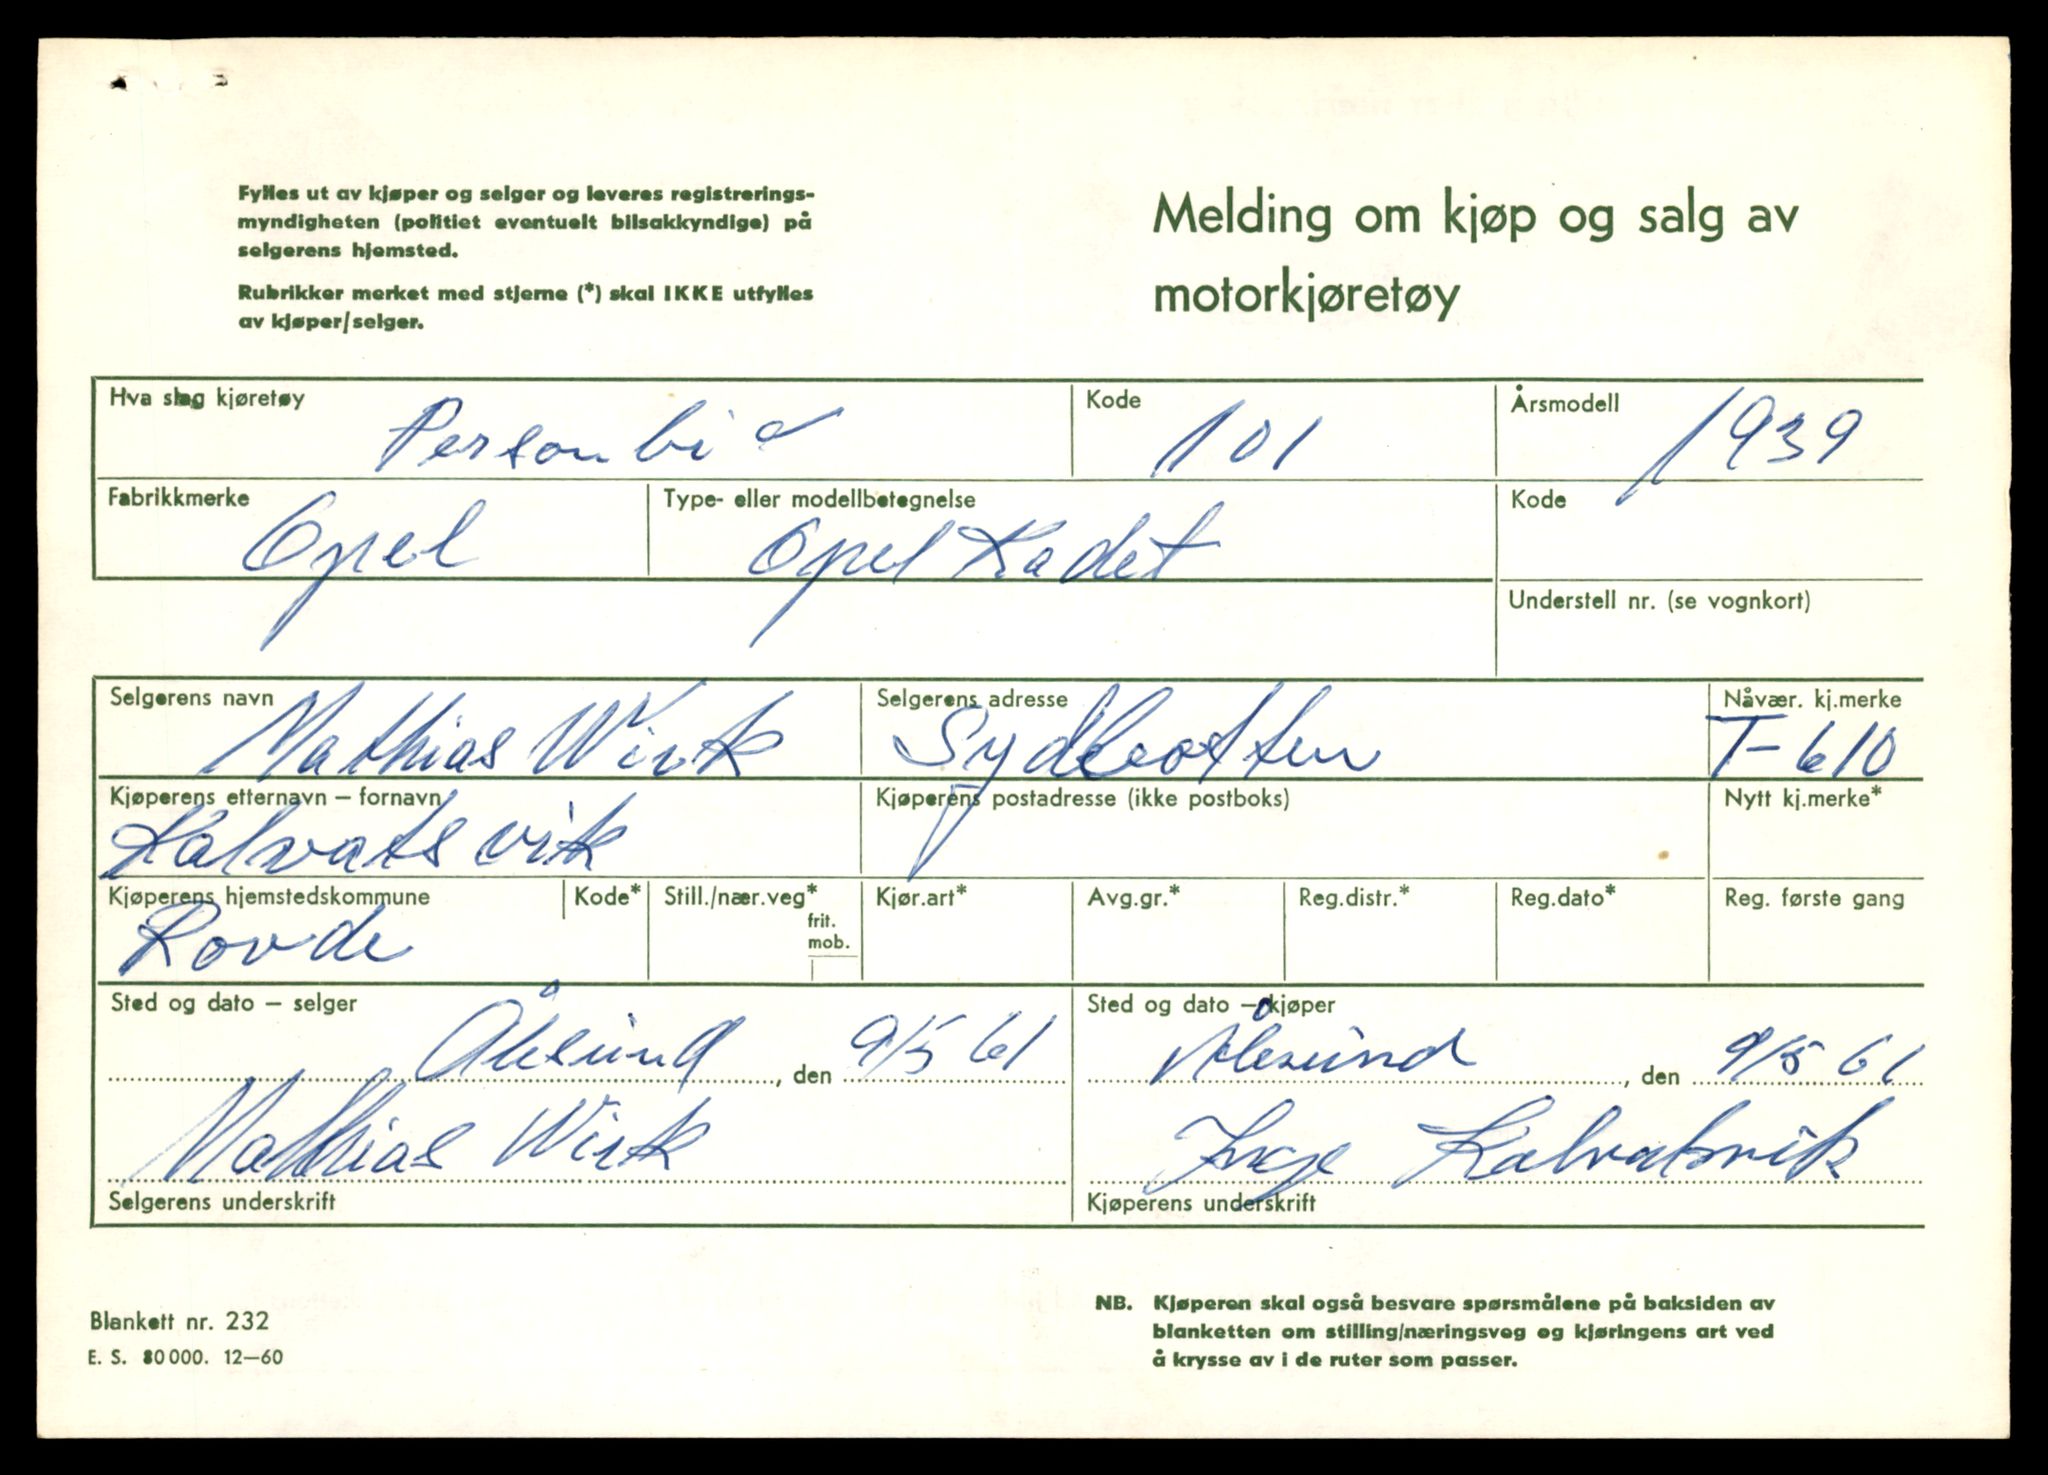 Fylles ut av kjøper og selger og leveres registrerings-
myndigheten (politiet eventuelt bilsakkyndige) på
selgerens hjemsted.
Rubrikker merket med stjerne (*) skal IKKE utfylles
av kjøper/selger.
Melding om kjøp og salg av
motorkjøretøy
Hva slag kjøretøy Personbil
Kode 101
Årsmodell 1939
Fabrikkmerke Opel
Type- eller modellbetegnelse Opel Kadet
Kode
Understell nr. (se vognkort)
Selgerens navn Mathias Wirk
Selgerens adresse
Nåvær. kj.merke T-610
Kjøperens etternavn – fornavn Kalvatsvik
Kjøperens postadresse (ikke postboks)
Nytt kj.merke*
Kjøperens hjemstedskommune Rovde
Kode*
Still./nær.veg* frit. mob.
Kjør.art*
Avg.gr.*
Reg.distr.*
Reg.dato*
Reg. første gang
Sted og dato – selger
Ålesund, den 9/5 61
Mathias Wirk
Selgerens underskrift
Sted og dato – kjøper
Ålesund, den 9/5 61
Inge Kalvatsvik
Kjøperens underskrift
Blankett nr. 232
E. S. 80000. 12–60
NB. Kjøperen skal også besvare spørsmålene på baksiden av
blanketten om stilling/næringsveg og kjøringens art ved
å krysse av i de ruter som passer.